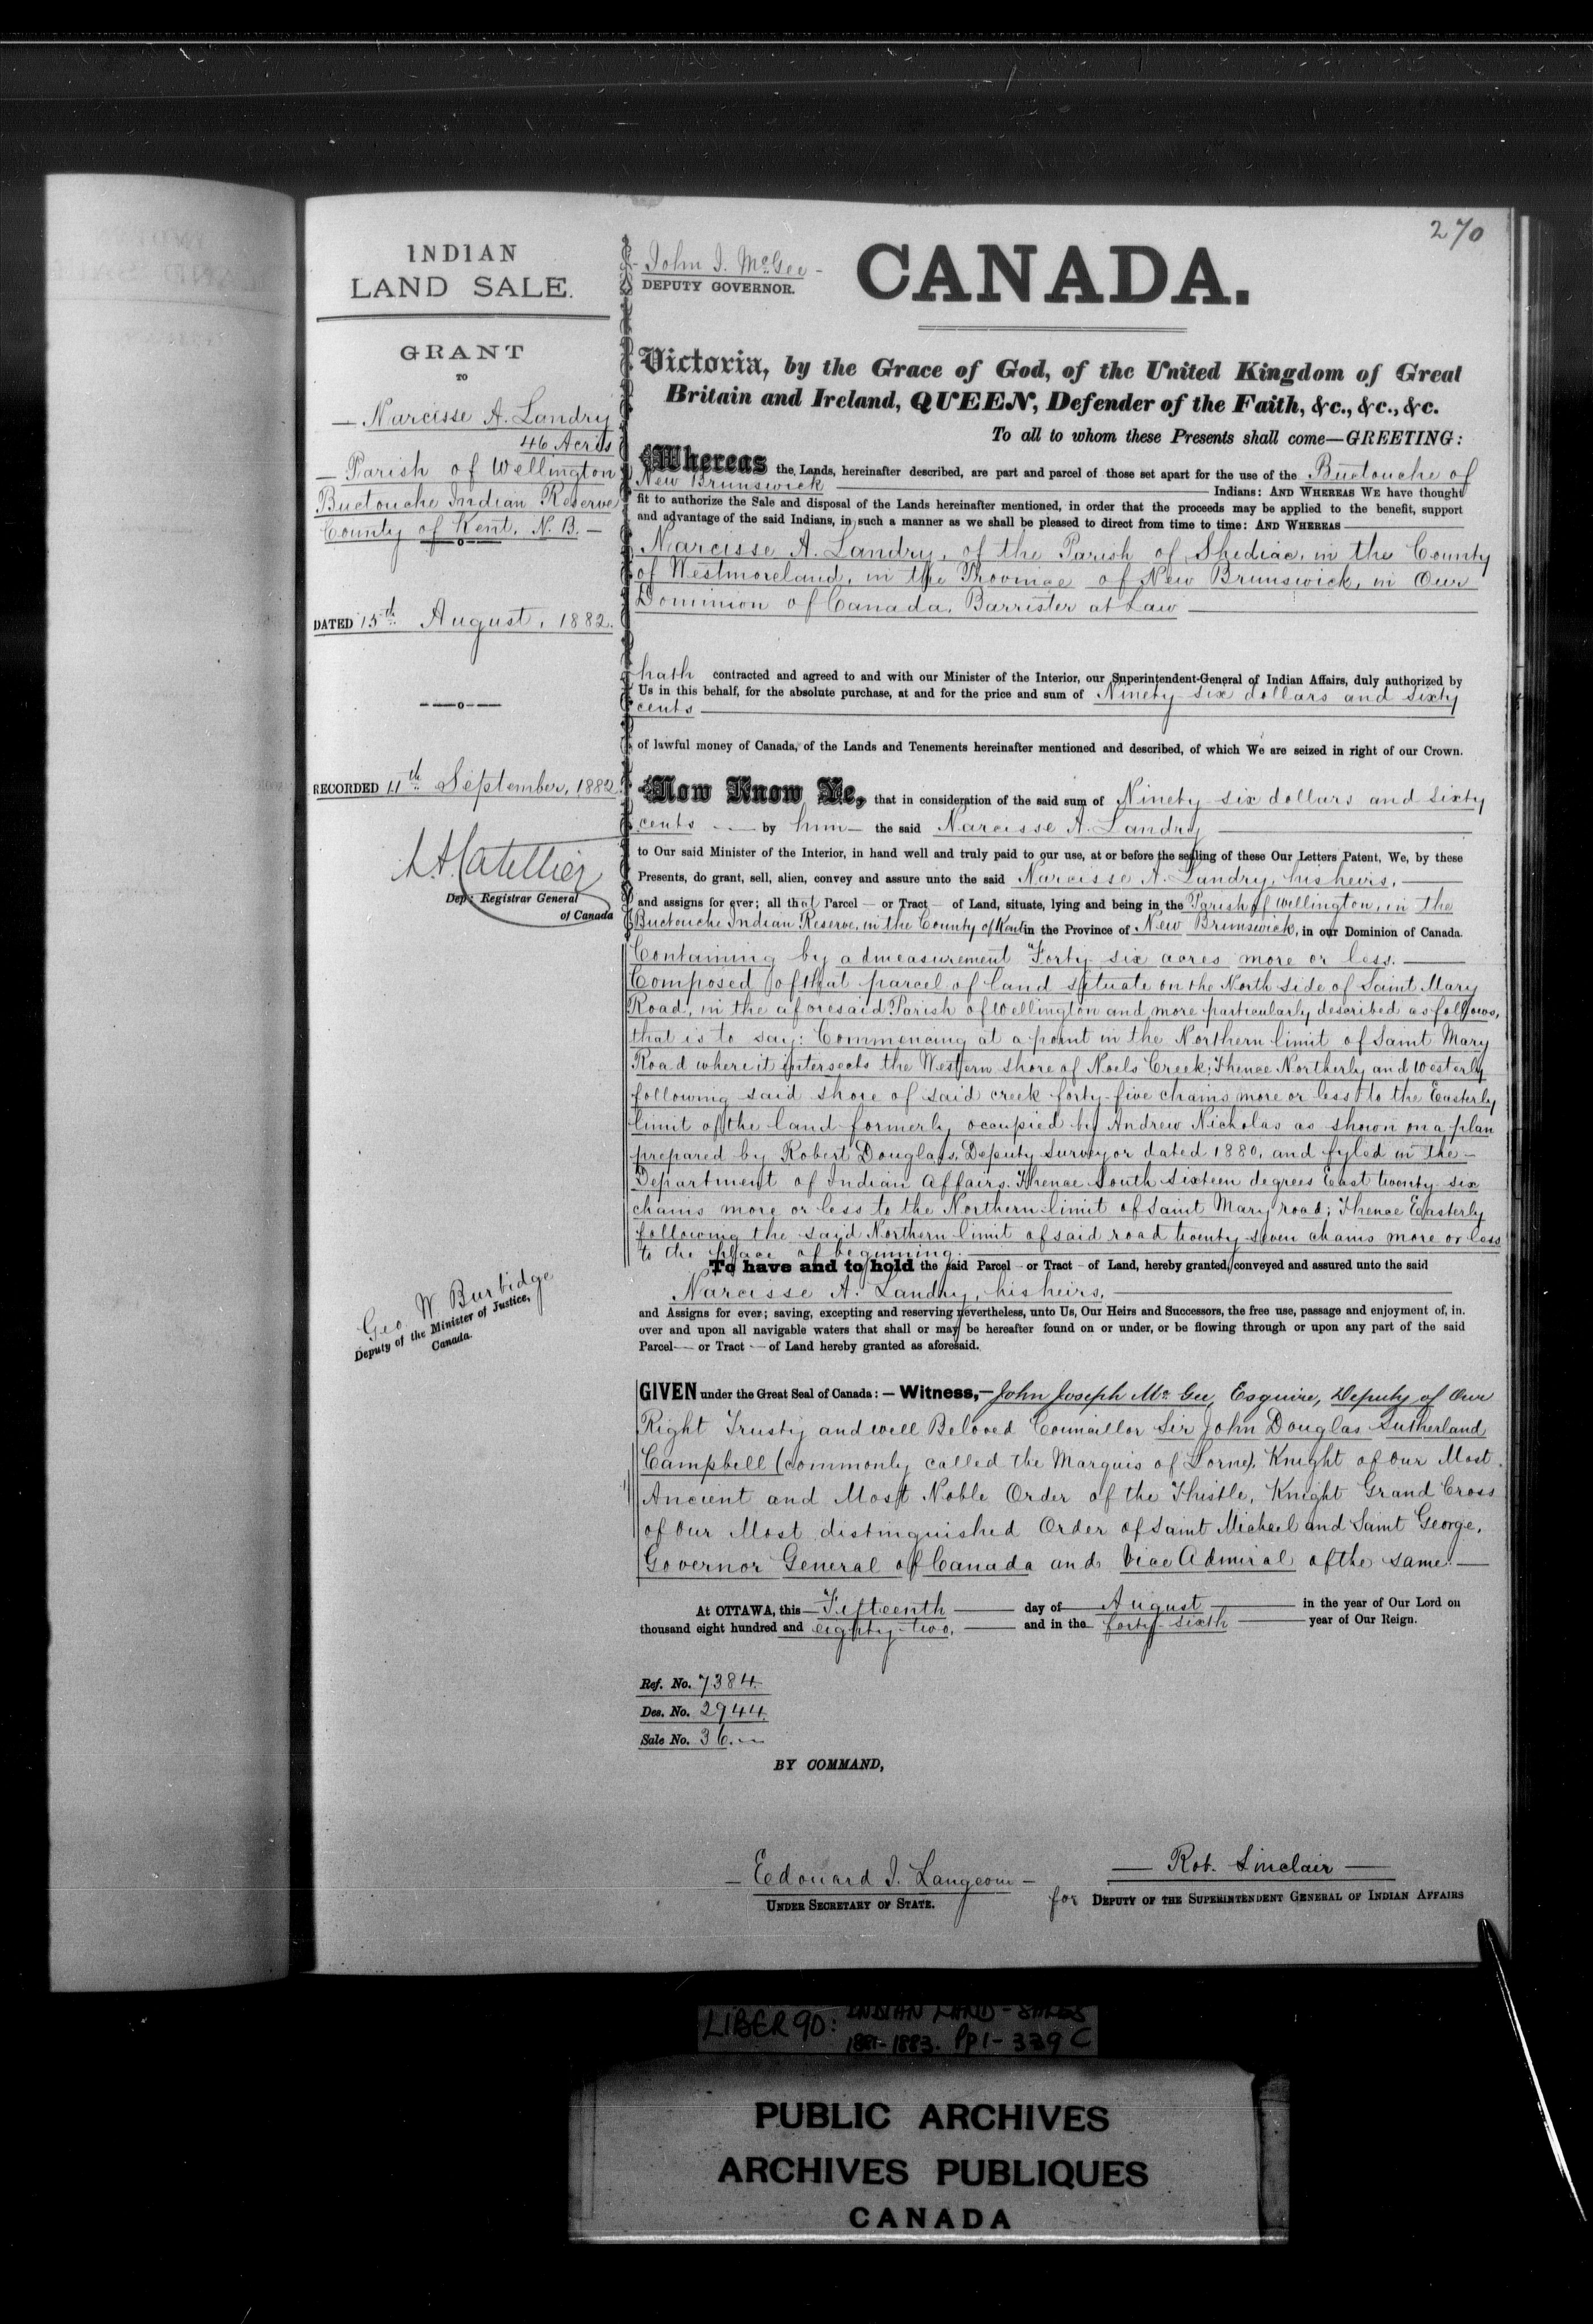 270
INDIAN
LAND SALE.
GRANT
TO
— Narcisse A. Landry
46 Acres
— Parish of Wellington
Buctouche Indian Reserve
County of Kent, N. B. —
DATED 15th August, 1882.
RECORDED 11th September, 1882
L. A. Catellier
Dep: Registrar General
of Canada
Geo. W. Burbidge
Deputy of the Minister of Justice,
Canada.
- John J. McGee -
DEPUTY GOVERNOR.
CANADA.
Victoria, by the Grace of God, of the United Kingdom of Great
Britain and Ireland, QUEEN, Defender of the Faith, &c., &c., &c.
To all to whom these Presents shall come—GREETING:
Whereas the Lands, hereinafter described, are part and parcel of those set apart for the use of the Buctouche of
New Brunswick — Indians: AND WHEREAS WE have thought
fit to authorize the Sale and disposal of the Lands hereinafter mentioned, in order that the proceeds may be applied to the benefit, support
and advantage of the said Indians, in such a manner as we shall be pleased to direct from time to time: AND WHEREAS —
Narcisse A. Landry, of the Parish of Shediac, in the County
of Westmoreland, in the Province of New Brunswick, in Our
Dominion of Canada, Barrister at Law —
hath contracted and agreed to and with our Minister of the Interior, our Superintendent-General of Indian Affairs, duly authorized by
Us in this behalf, for the absolute purchase, at and for the price and sum of Ninety six dollars and sixty
cents —
of lawful money of Canada, of the Lands and Tenements hereinafter mentioned and described, of which We are seized in right of our Crown.
Now Know Ye, that in consideration of the said sum of Ninety six dollars and sixty
cents — by him — the said Narcisse A. Landry —
to Our said Minister of the Interior, in hand well and truly paid to our use, at or before the sealing of these Our Letters Patent, We, by these
Presents, do grant, sell, alien, convey and assure unto the said Narcisse A. Landry, his heirs, —
and assigns for ever; all that Parcel — or Tract — of Land, situate, lying and being in the Parish of Wellington, in the
Buctouche Indian Reserve, in the County of Kent in the Province of New Brunswick, in our Dominion of Canada.
Containing by admeasurement Forty six acres more or less. —
Composed of that parcel of land situate on the North side of Saint Mary
Road, in the aforesaid Parish of Wellington and more particularly described as follows,
that is to say: Commencing at a point in the Northern limit of Saint Mary
Road where it intersects the Western shore of Noels Creek; Thence Northerly and Westerly
following said shore of said creek forty-five chains more or less to the Easterly
limit of the land formerly occupied by Andrew Nicholas as shown on a plan
prepared by Robert Douglass, Deputy Surveyor dated 1880, and fyled in the —
Department of Indian Affairs. Thence South sixteen degrees East twenty six
chains more or less to the Northern limit of Saint Mary road; Thence Easterly
following the said Northern limit of said road twenty-seven chains more or less
to the place of beginning. —
To have and to hold the said Parcel — or Tract — of Land, hereby granted, conveyed and assured unto the said
Narcisse A. Landry, his heirs, —
and Assigns for ever; saving, excepting and reserving nevertheless, unto Us, Our Heirs and Successors, the free use, passage and enjoyment of, in,
over and upon all navigable waters that shall or may be hereafter found on or under, or be flowing through or upon any part of the said
Parcel — or Tract — of Land hereby granted as aforesaid.
GIVEN under the Great Seal of Canada: — Witness, — John Joseph McGee, Esquire, Deputy of Our
Right Trusty and well Beloved Councillor Sir John Douglas Sutherland
Campbell (commonly called the Marquis of Lorne), Knight of Our Most
Ancient and Most Noble Order of the Thistle, Knight Grand Cross
of Our Most distinguished Order of Saint Michael and Saint George,
Governor General of Canada and Vice Admiral of the same. —
At OTTAWA, this — Fifteenth — day of — August — in the year of Our Lord on
thousand eight hundred and eighty-two, — and in the forty-sixth — year of Our Reign.
Ref. No. 7384.
Des. No. 2944.
Sale No. 36. —
BY COMMAND,
— Edouard J. Langevin —
UNDER SECRETARY OF STATE.
— Rob. Sinclair —
for DEPUTY OF THE SUPERINTENDENT GENERAL OF INDIAN AFFAIRS
LIBER 90: INDIAN LAND - SALES
1881-1883. Pp 1-339 C
PUBLIC ARCHIVES
ARCHIVES PUBLIQUES
CANADA